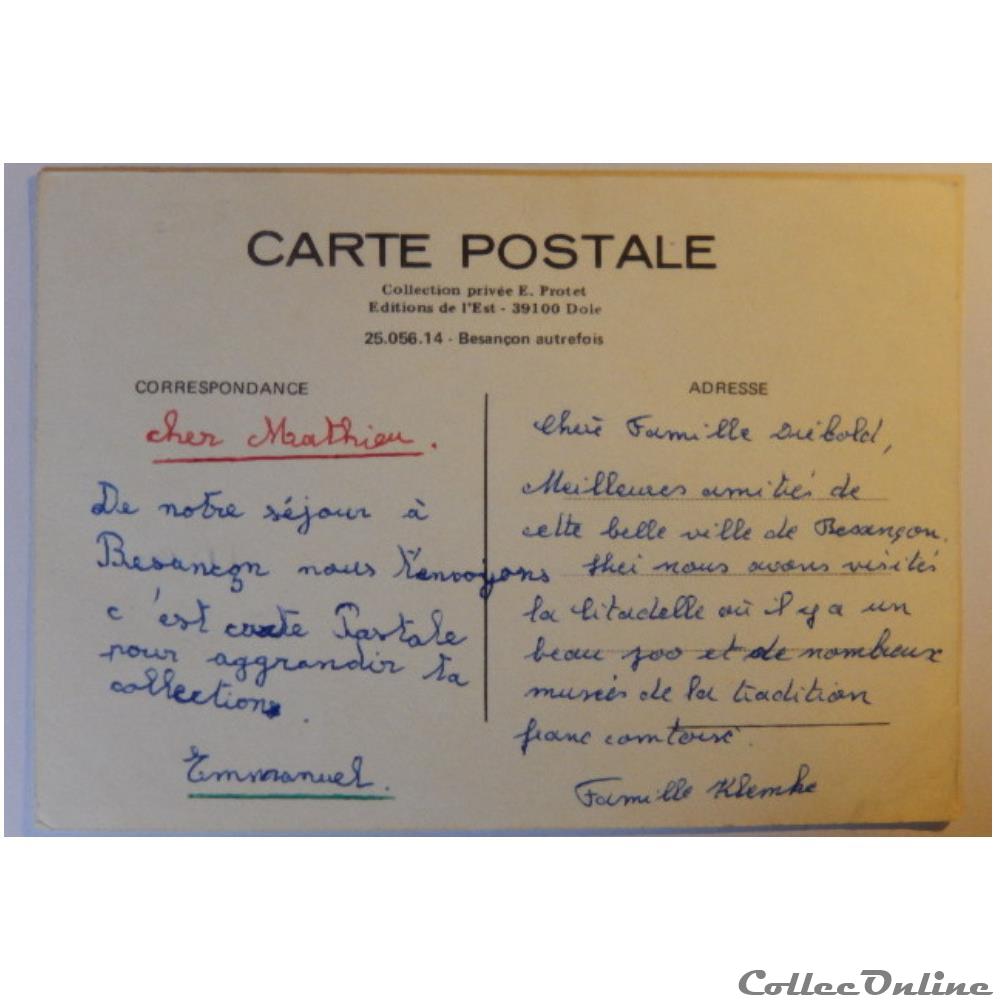 CARTE POSTALE
Collection privée E. Protet
Editions de l'Est - 39100 Dole
25.056.14 - Besançon autrefois
CORRESPONDANCE
cher Mathieu.
De notre séjour à
Besançon nous t'envoyons
c'est carte Postale
pour aggrandir ta
collection.
Emmanuel.
ADRESSE
Chère Famille Diébold,
Meilleures amitiés de
cette belle ville de Besançon.
nous avons visités
la Citadelle où il y a un
beau zoo et de nombreux
musés de la tradition
franc comtoise.
Famille Klemke
CollecOnline